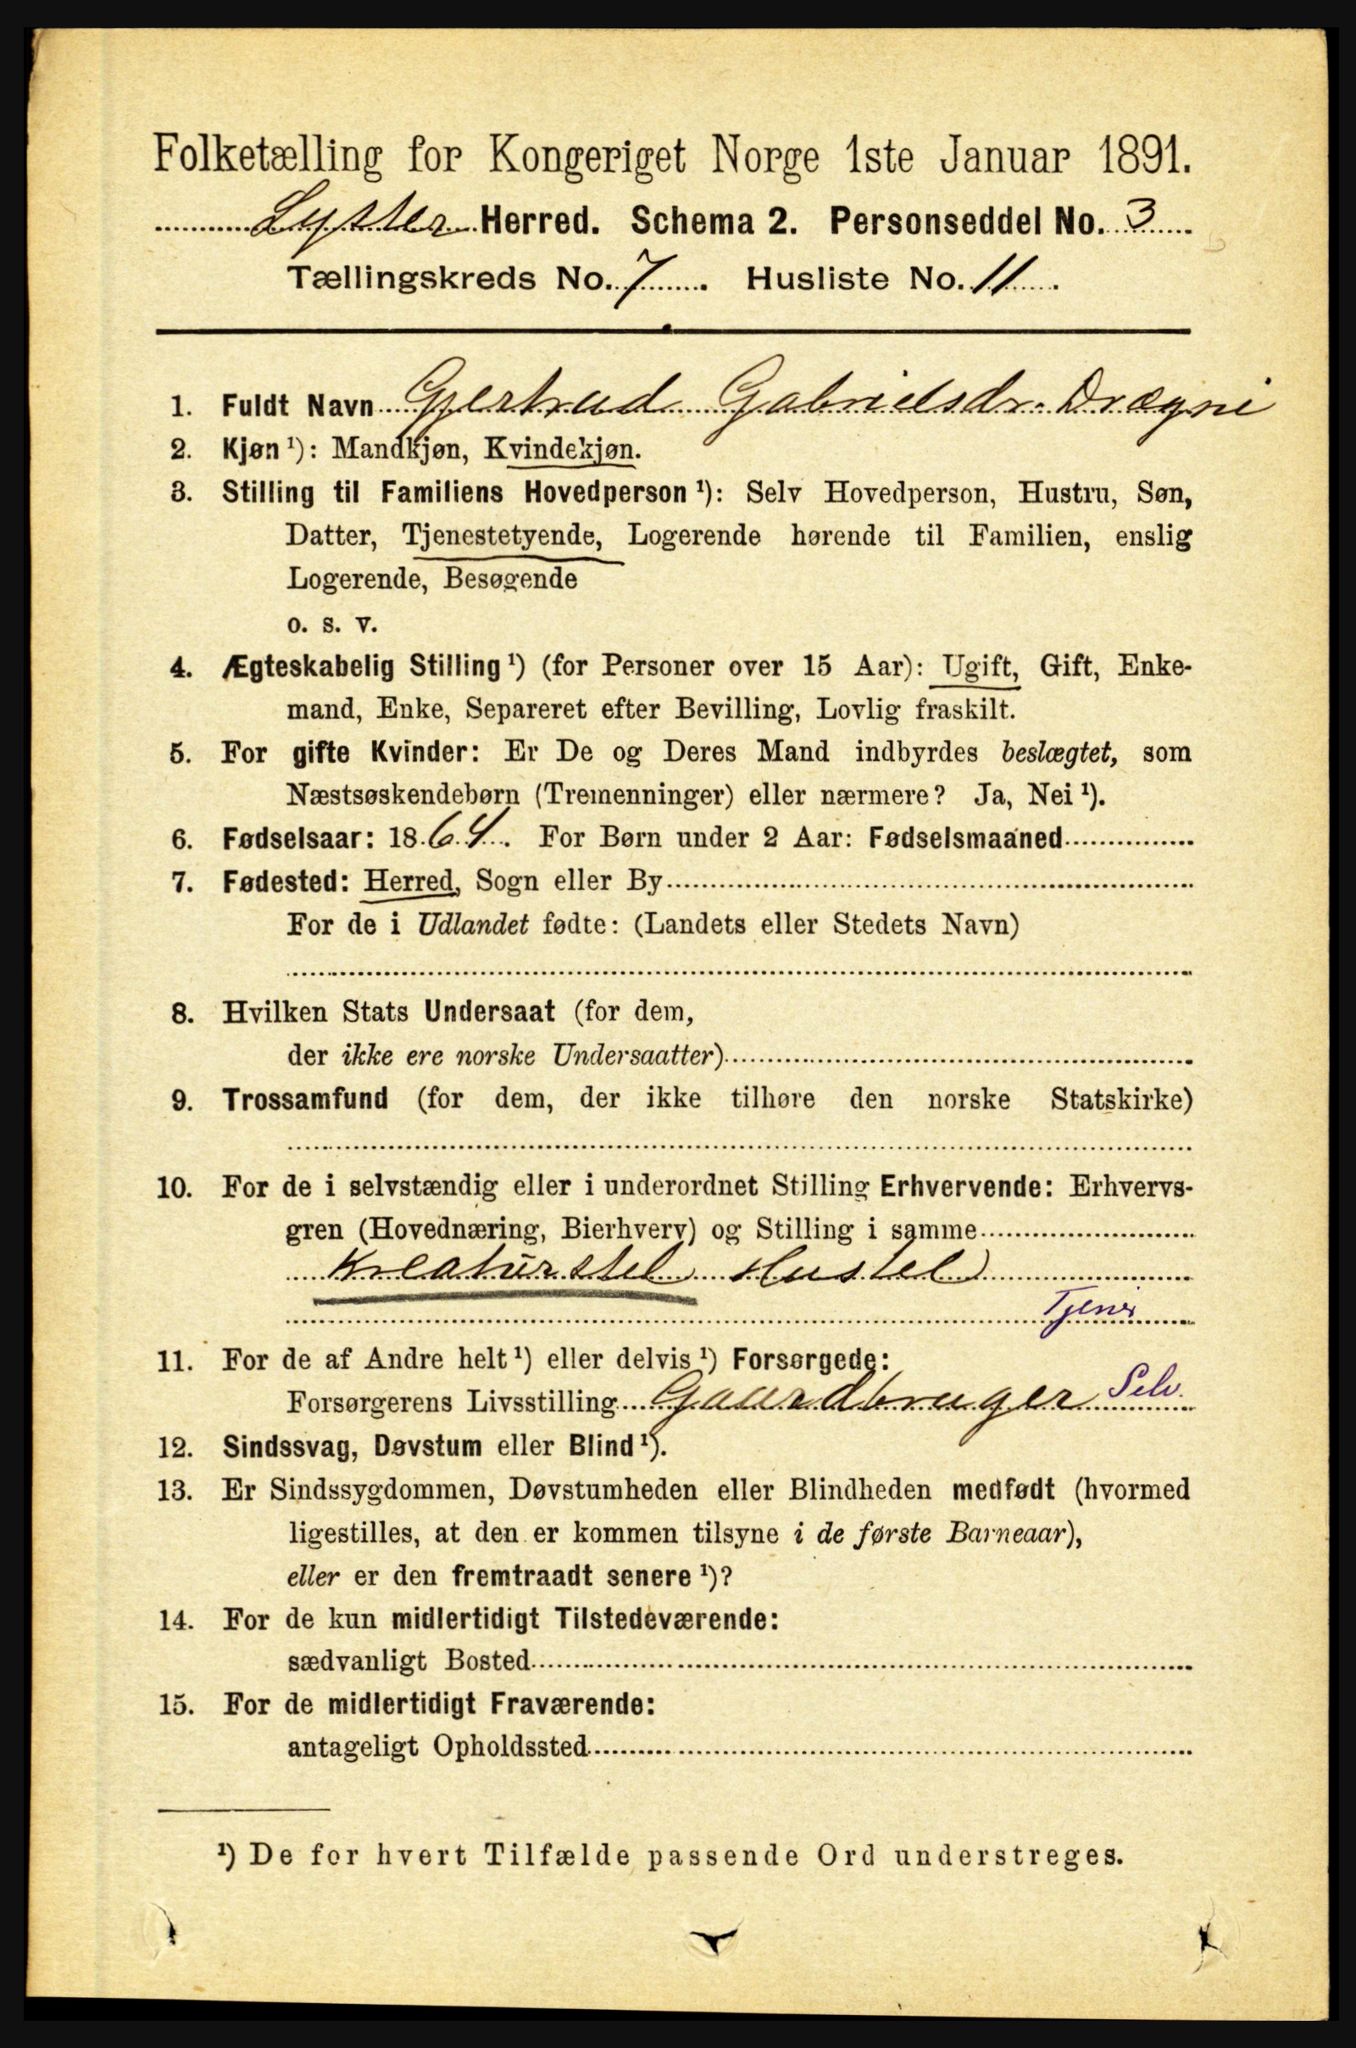 Folketælling for Kongeriget Norge 1ste Januar 1891.
Lyster Herred. Schema 2. Personseddel No. 3
Tællingskreds No. 7. Husliste No. 11.
1. Fuldt Navn Gjertrud Gabrielsdr. Drægni
2. Kjøn¹): Mandkjøn, Kvindekjøn.
3. Stilling til Familiens Hovedperson¹): Selv Hovedperson, Hustru, Søn,
Datter, Tjenestetyende, Logerende hørende til Familien, enslig
Logerende, Besøgende
o. s. v.
4. Ægteskabelig Stilling¹) (for Personer over 15 Aar): Ugift, Gift, Enke-
mand, Enke, Separeret efter Bevilling, Lovlig fraskilt.
5. For gifte Kvinder: Er De og Deres Mand indbyrdes beslægtet, som
Næstsøskendebørn (Tremenninger) eller nærmere? Ja, Nei¹).
6. Fødselsaar: 1864. For Børn under 2 Aar: Fødselsmaaned
7. Fødested: Herred, Sogn eller By
For de i Udlandet fødte: (Landets eller Stedets Navn)
8. Hvilken Stats Undersaat (for dem,
der ikke ere norske Undersaatter)
9. Trossamfund (for dem, der ikke tilhøre den norske Statskirke)
10. For de i selvstændig eller i underordnet Stilling Erhvervende: Erhvervs-
gren (Hovednæring, Bierhverv) og Stilling i samme
Kreaturstel Hustel
Tjener
11. For de af Andre helt¹) eller delvis¹) Forsørgede:
Forsørgerens Livsstilling Gaardbruger Selv.
12. Sindssvag, Døvstum eller Blind¹).
13. Er Sindssygdommen, Døvstumheden eller Blindheden medfødt (hvormed
ligestilles, at den er kommen tilsyne i de første Barneaar),
eller er den fremtraadt senere¹)?
14. For de kun midlertidigt Tilstedeværende:
sædvanligt Bosted
15. For de midlertidigt Fraværende:
antageligt Opholdssted
¹) De for hvert Tilfælde passende Ord understreges.